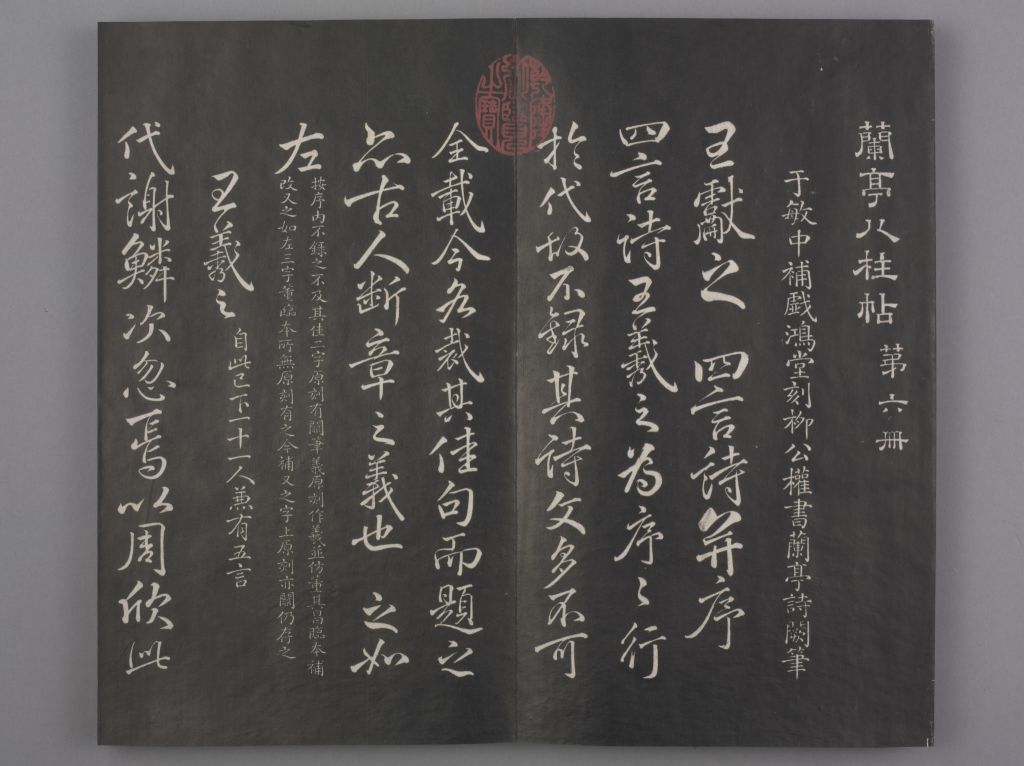 蘭亭八柱帖 第六冊
于敏中補戲鴻堂刻柳公權書蘭亭詩闕筆
王獻之 四言詩并序
四言詩王羲之為序序行
於代故不錄其詩文多不可
全載今各裁其佳句而題之
亦古人斷章之義也 之如
左
按序內不錄之不及其佳二字原刻有闕筆義原刻作羲並仿董其昌臨本補
改又之如左三字董臨本所無原刻有之今補又之字上原刻亦闕仍存之
王羲之 自此已下十一人兼有五言
代謝鱗次忽焉以周欣此